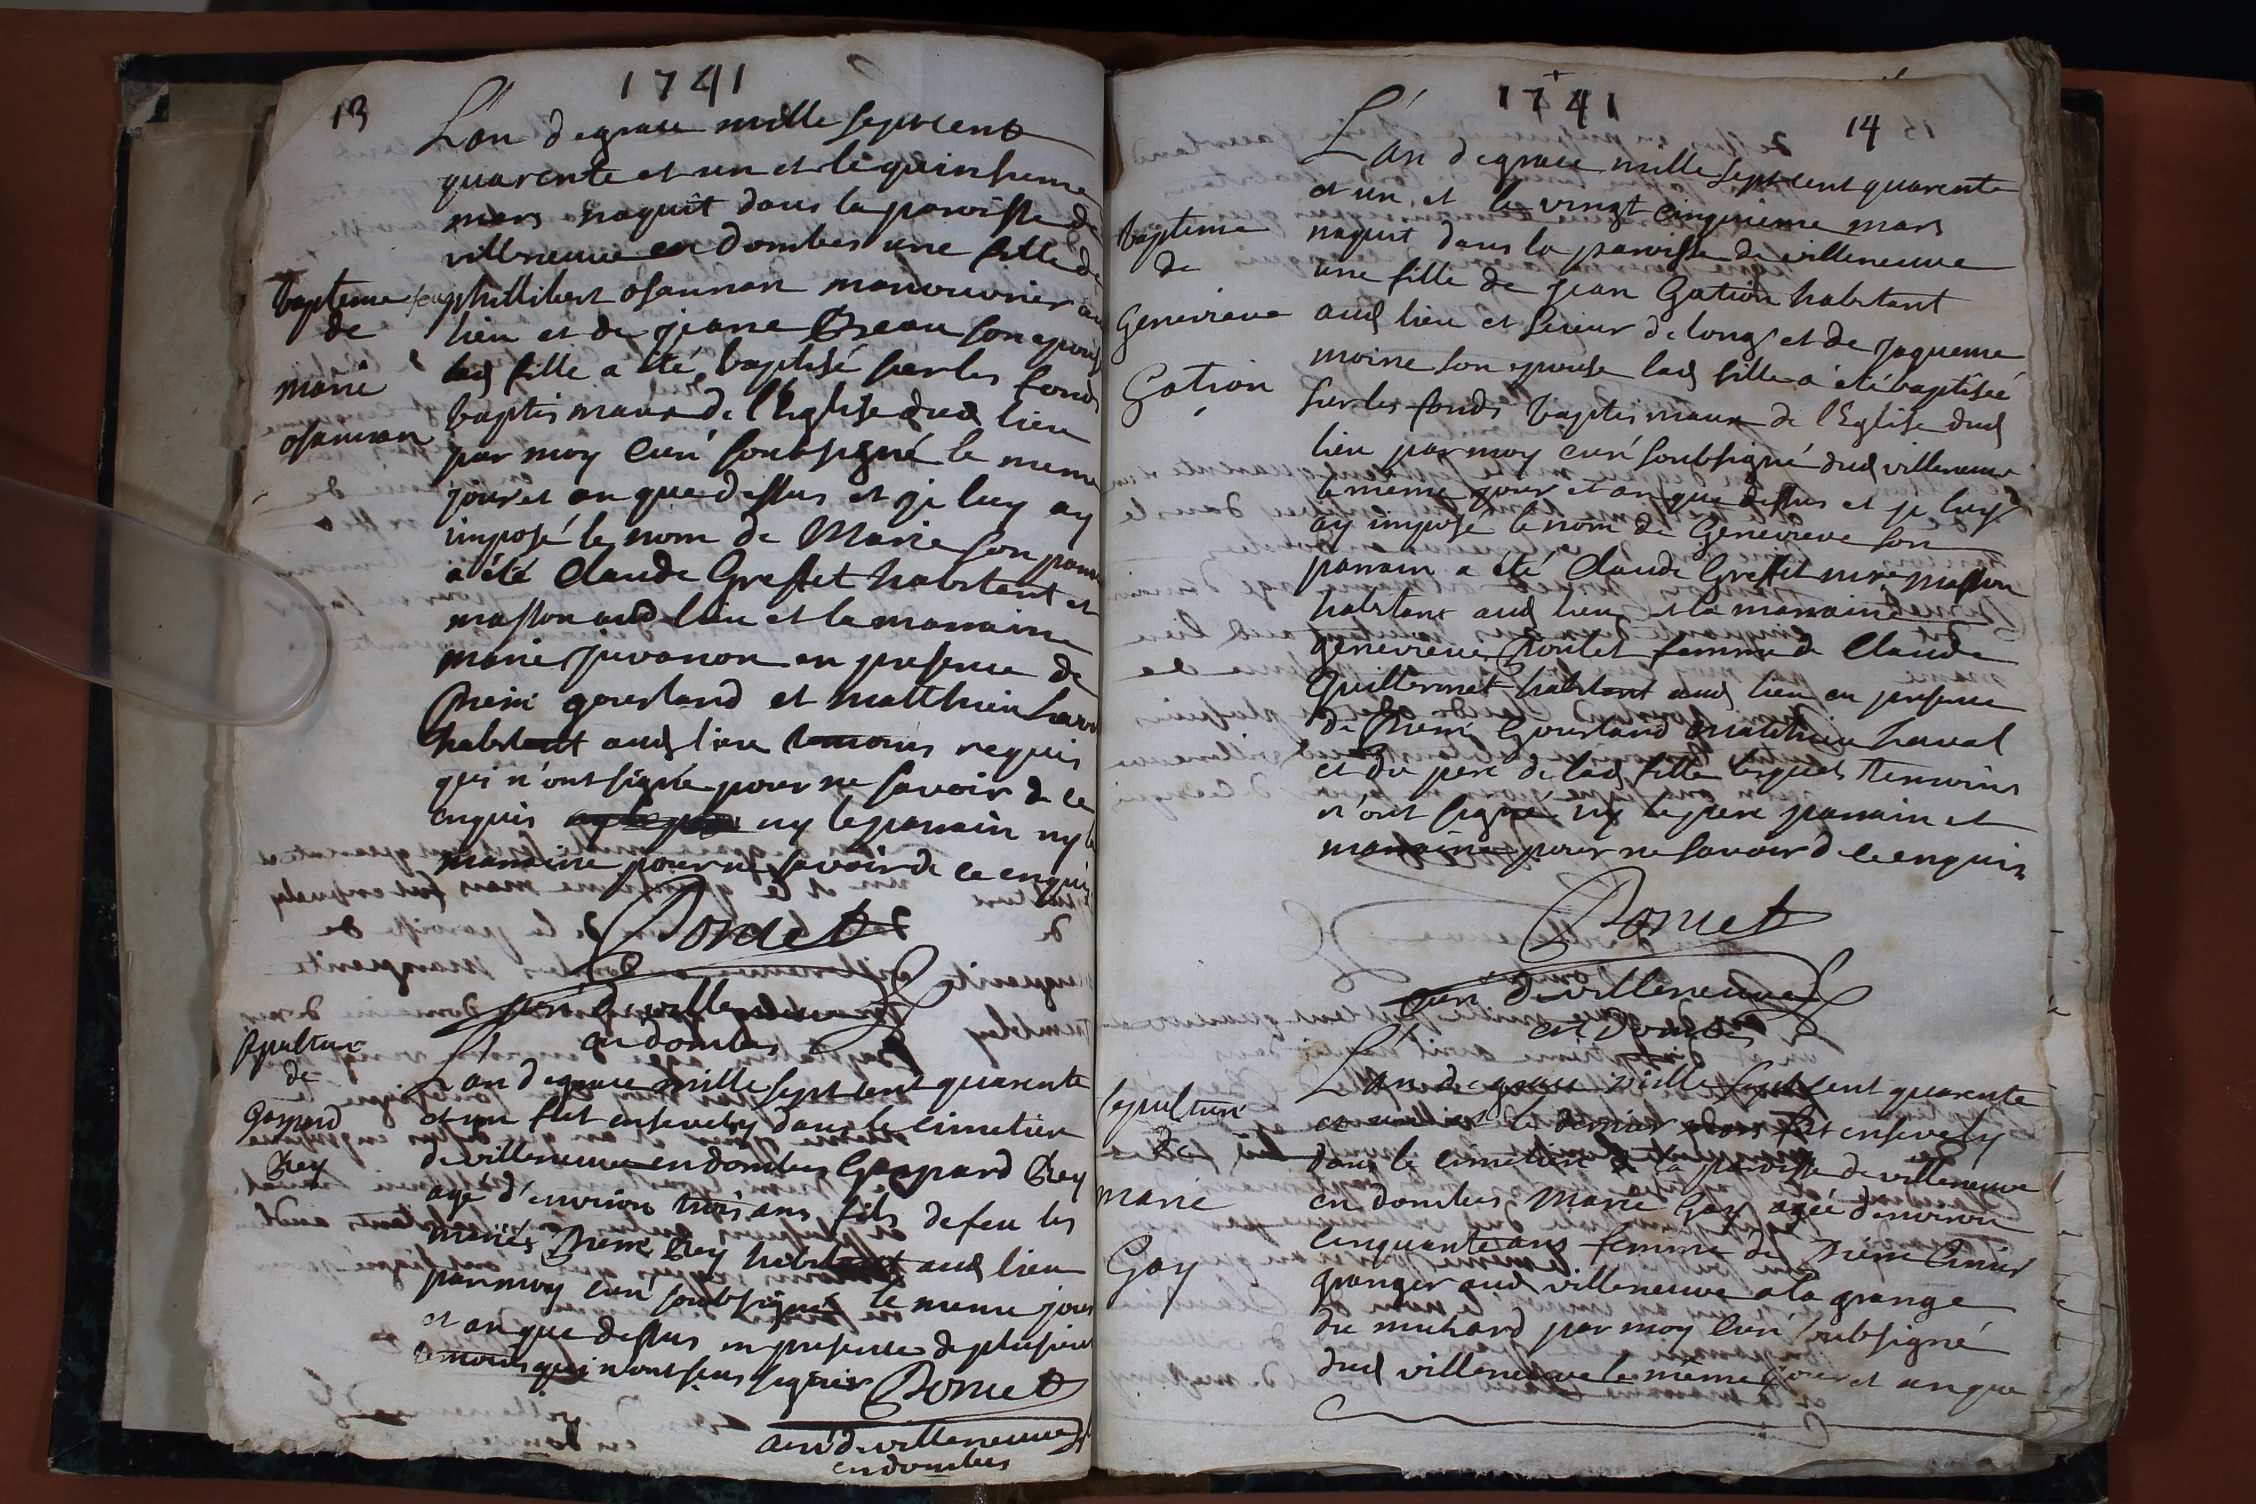 1741
13
L'an de grace mille sept cent
quarente et un et le quinsieme
mars naquit dans la paroisse de
villeneuve en dombes une fille de
phillibert osannan manouvrier au
lieu et de jeane Beau son epouse
lad fille a été baptisé sur les fonds
baptismaux de l'Eglise dud lieu
par moy curé soubsigné le meme
jour et an que dessus et je luy ay
imposé le nom de Marie son parain
a été Claude Greffet habitant et
masson aud lieu et la marraine
marie juvanon en presence de
pierre gourland et matthieu
habitant aud lieu temoins requis
qui n'ont signé pour ne savoir de ce
enquis ny le parrain ny la
marraine pour ne savoir de ce enquis
bapteme
de
marie
osannan
Poncet
curé de villeneuve
en dombes
sepulture
de
Gaspard
Rey
L'an de grace mille sept cent quarente
et un fut ensevely dans le cimetier
de villeneuve en dombes Gaspard Rey
agé d'environ trois ans fils de feu les
mariés pierre Rey habitant aud lieu
par moy curé soubsigné le meme jour
et an que dessus en presence de plusieurs
temoins qui n'ont sceu signer Poncet
curé de villeneuve
en dombes
1741
14
L'an de grace mille sept cent quarente
et un et le vingt cinquieme mars
naquit dans la paroisse de villeneuve
une fille de jean Gation habitant
aud lieu et scieur de long et de jaqueme
moine son epouse lad fille a été baptisée
sur les fonds baptismaux de l'Eglise dud
lieu par moy curé soubsigné dud villeneuve
le même jour et an que dessus et je luy
ay imposé le nom de Genevieve son
parrain a été Claude Greffet mre masson
habitant aud lieu et la marraine
genevieve femme de Claude
Guillermet habitant aud lieu en presence
de pierre Gourland matthieu
et du pere de lad fille lesquels temoins
n'ont signé ny le pere parrain et
marraine pour ne savoir de ce enquis
bapteme
de
Genevieve
Gation
Poncet
curé de villeneuve
en Dombes
sepulture
de
marie
Gay
L'an de grace mille sept cent quarente
et un et le dernier mars fut ensevely
dans le cimetier de la paroisse de villeneuve
en dombes Marie Gay agée d'environ
cinquante ans femme de pierre
granger aud villeneuve a la grange
du par moy curé subsigné
dud villeneuve le même jour et an que